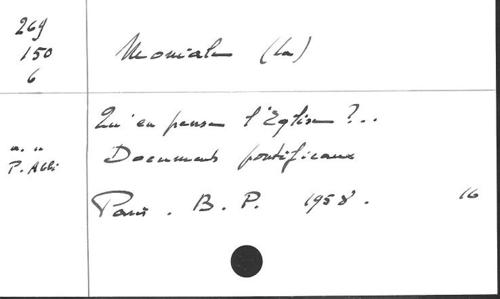 269
150
6
Moniale (La)
Qu'en pense l'Eglise ?..
Documents pontificaux
P. Abbi
Paris. B. P. 1958. 16